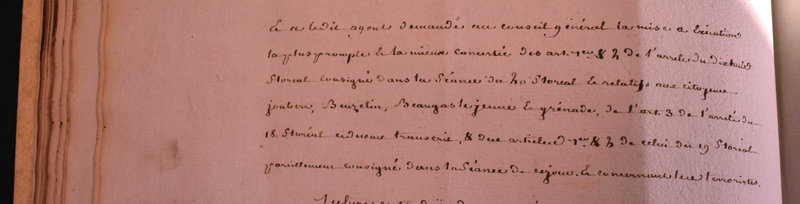 Et a ledit agent demandé au conseil général la mise a Exécution
la plus prompte & la mieux concertée des art. 1er & 2 de l'arrêté du dixhuit
floréal consigné dans la Séance du 20 floréal & relatifs aux citoyens
joubert, Beuzelin, Beaugas le jeune & grénade, de l'art. 3 de l'arrêté du
18 floréal cidessus transcrit, & des articles 1er & 2 de celui du 19 floréal
pareillement consigné dans la Séance de ce jour, & concernant les terroristes.